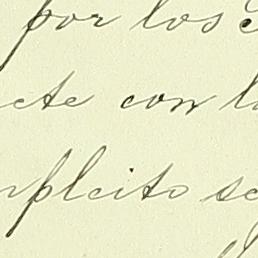 por los
cte con l
npleito se